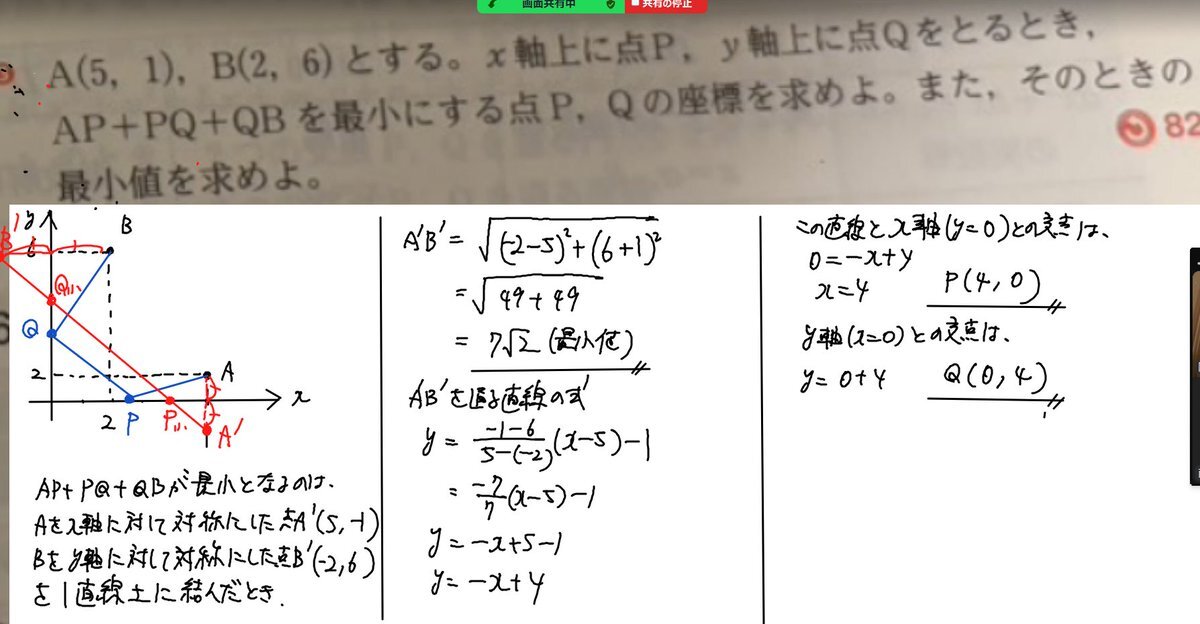 画面共有中
共有の停止
A(5, 1), B(2, 6)とする。x軸上に点P, y軸上に点Qをとるとき,
AP+PQ+QBを最小にする点P, Qの座標を求めよ。また, そのときの
最小値を求めよ。
82
y
B
B'
6
Q
Q
2
A
x
2
P
P
A'
AP+PQ+QBが最小となるのは、
Aをx軸に対して対称にした点A'(5,-1)
Bをy軸に対して対称にした点B'(-2,6)
を1直線上に結んだとき.
A'B' = √((-2-5)²+(6+1)²)
= √(49+49)
= 7√2 (最小値)
A'B'を通る直線の式
y = (-1-6)/(5-(-2)) (x-5)-1
= -7/7 (x-5)-1
y = -x+5-1
y = -x+4
この直線とx軸(y=0)との交点は、
0=-x+4
x=4 P(4,0)
y軸(x=0)との交点は、
y= 0+4 Q(0,4)